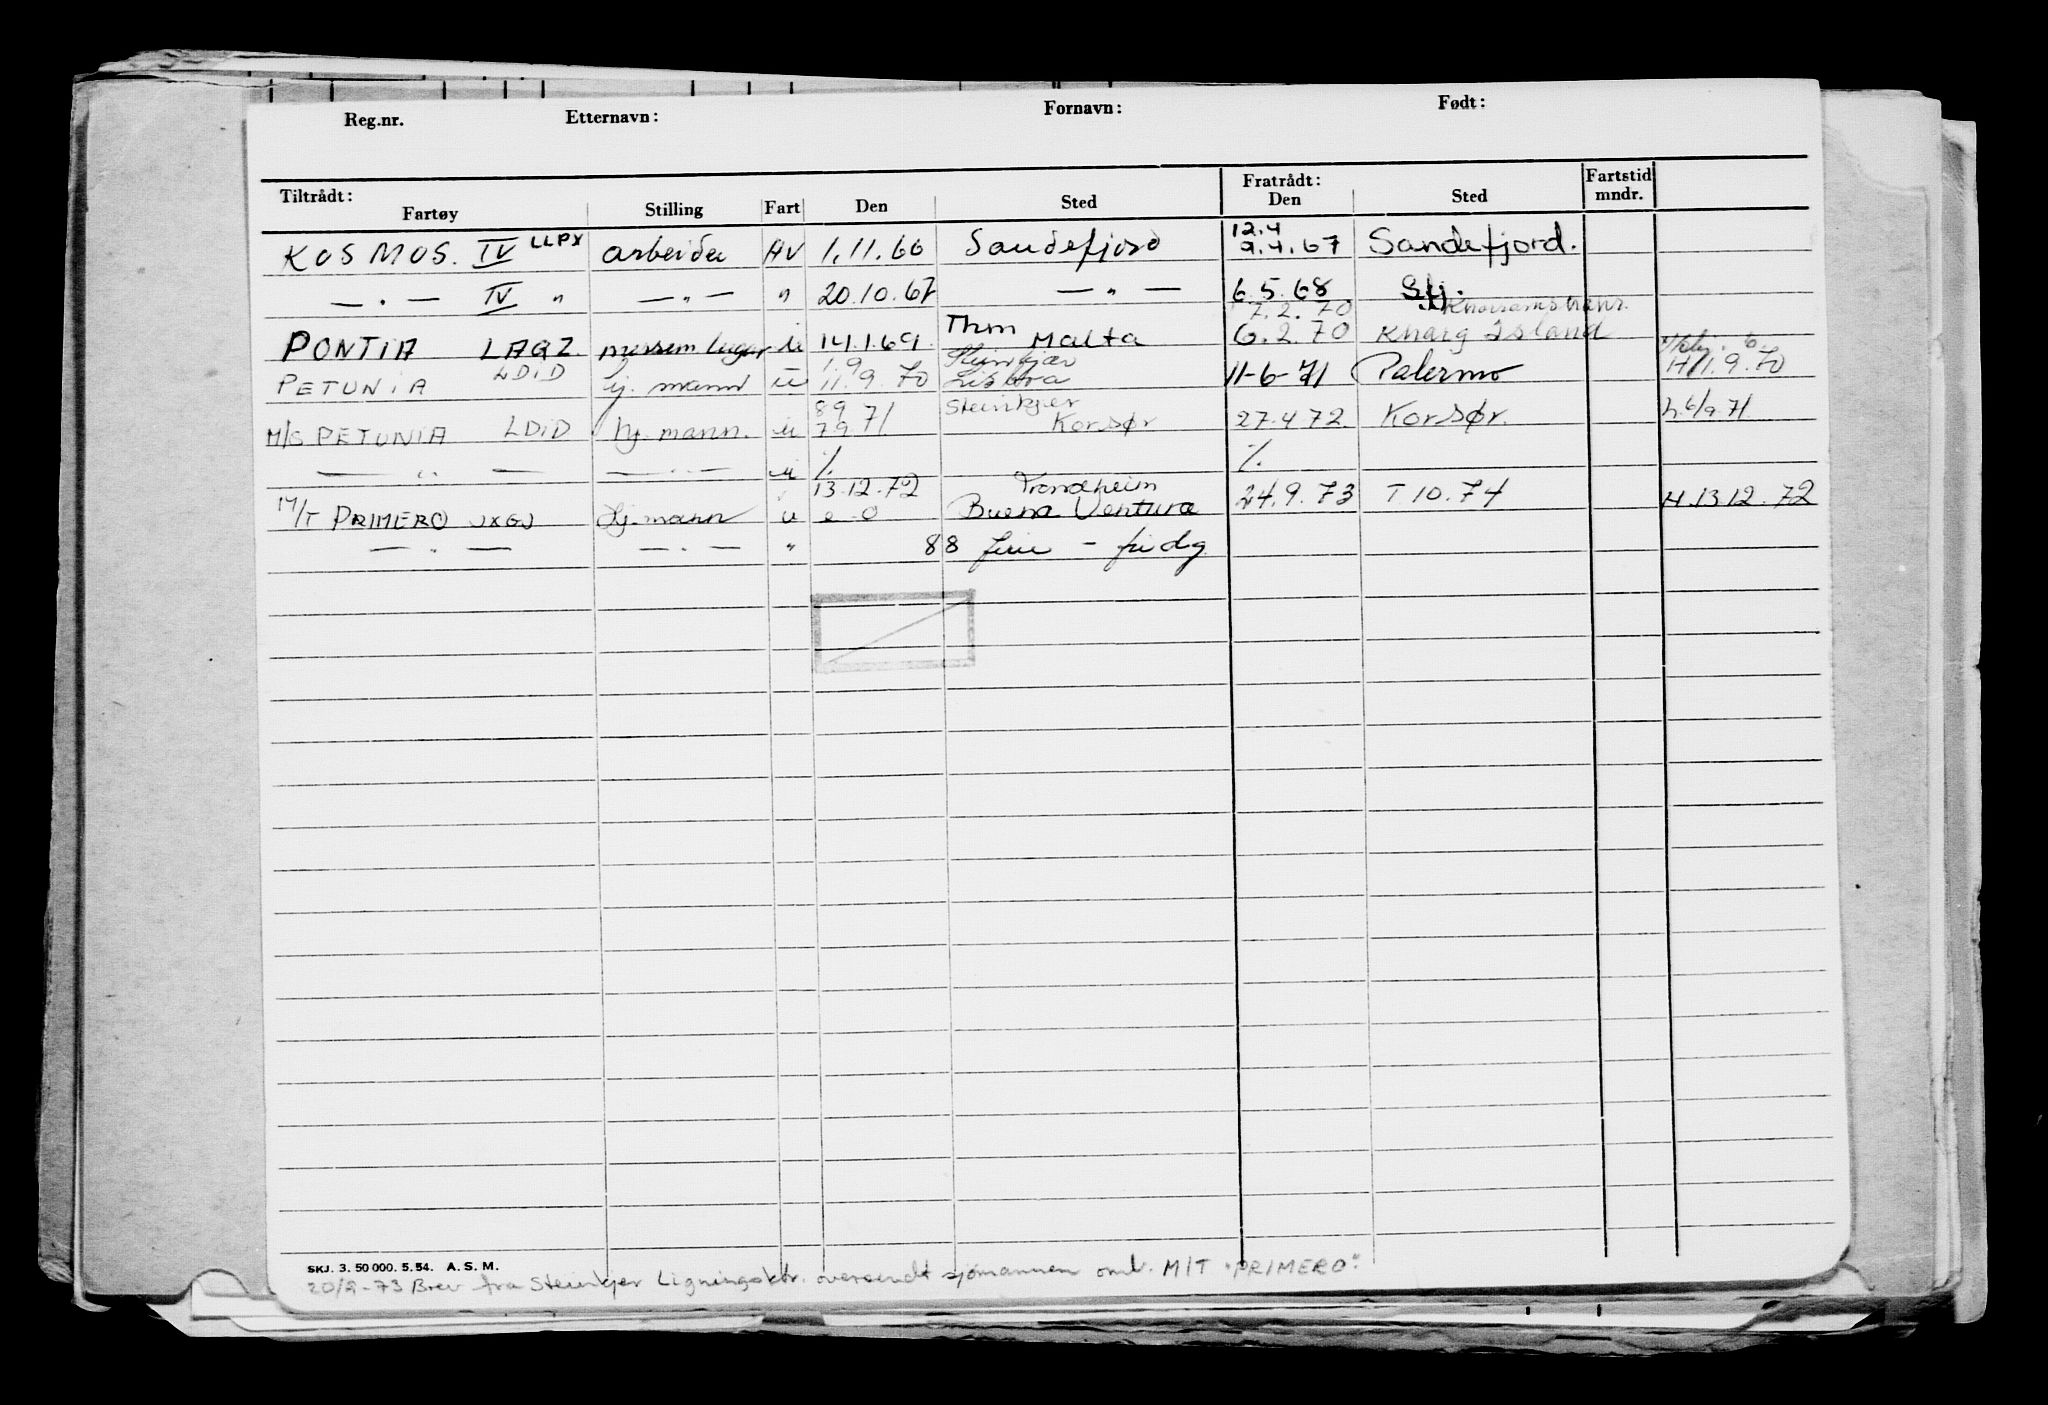 Reg.nr. Etternavn: Fornavn: Født:
Tiltrådt: Fratrådt: Fartstid
Fartøy Stilling Fart Den Sted Den Sted mndr.
12.4
KOSMOS. IV LLPX arbeider AV 1.11.66 Sandefjord 9.4.67 Sandefjord.
— " — IV " — " — " 20.10.67 — " — 6.5.68 Sfj.
7.2.70
Thm
PONTIA LAGZ u 14.1.69. Malta 6.2.70 Kharg Island
1.9 Steinkjær
PETUNIA LDID lj. mann u 11.9.70 Lisboa 11-6-71 Palermo H 1.9.70
89 Steinkjer
M/S PETUNIA LDID lj. mann. u 79 71 Korsør 27.4 72. Korsør. h. 6/9 71
— " — — " — u % %
13.12.72 Trondheim
M/T PRIMERO JXGJ lj. mann u e-o Buena Ventura 24.9.73 T 10.74 H. 13 12. 72
— " — — " — " 88 ferie - fridg
SKJ. 3. 50 000. 5. 54. A. S. M.
20/9-73 Brev fra Steinkjer Ligningsktr. oversendt sjømannen omb. M/T "PRIMERO".